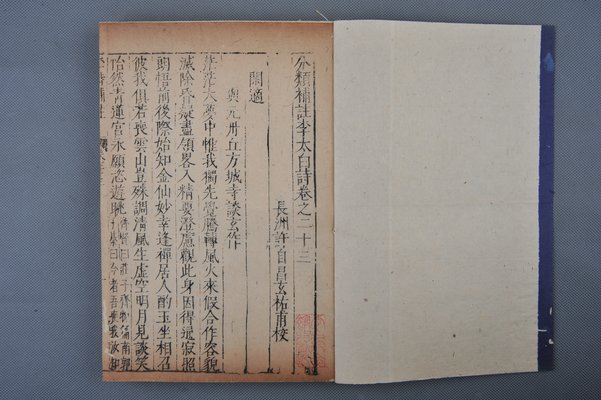 分類補註李太白詩卷之二十三
長洲許自昌玄祐甫校
閒適
與元丹丘方城寺談玄作
茫茫大夢中惟我獨先覺騰轉風火來假合作容貌
滅除昏疑盡領畧入精要澄慮觀此身因得通寂照
朗悟前後際始知金仙妙幸逢禪居人酌玉坐相召
彼我俱若喪雲山豈殊調清風生虛空明月見談笑
怡然青蓮宮永願恣遊眺